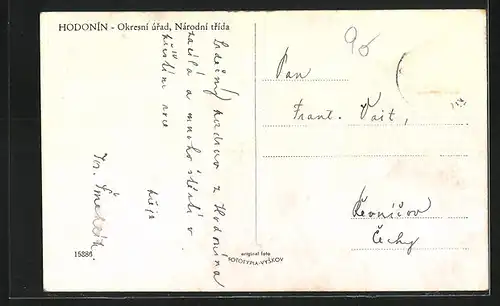 HODONÍN - Okresní úřad, Národní třída
Srdečný pozdrav z Hodonína
zasílá a mnoho štěstí v
příštím roce
přeje
Jos.
15386
original foto
FOTOTYPIA-VYŠKOV
96
Pan
Frant. Vait,
Řevničov
Čechy